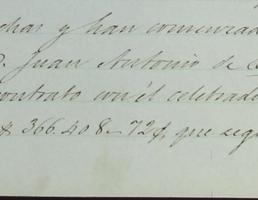 echas y han comenzad
D. Juan Antonio de
contrato con él celebrad
$ 366.408-72¢, que seg